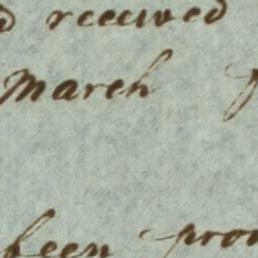 received
March
been